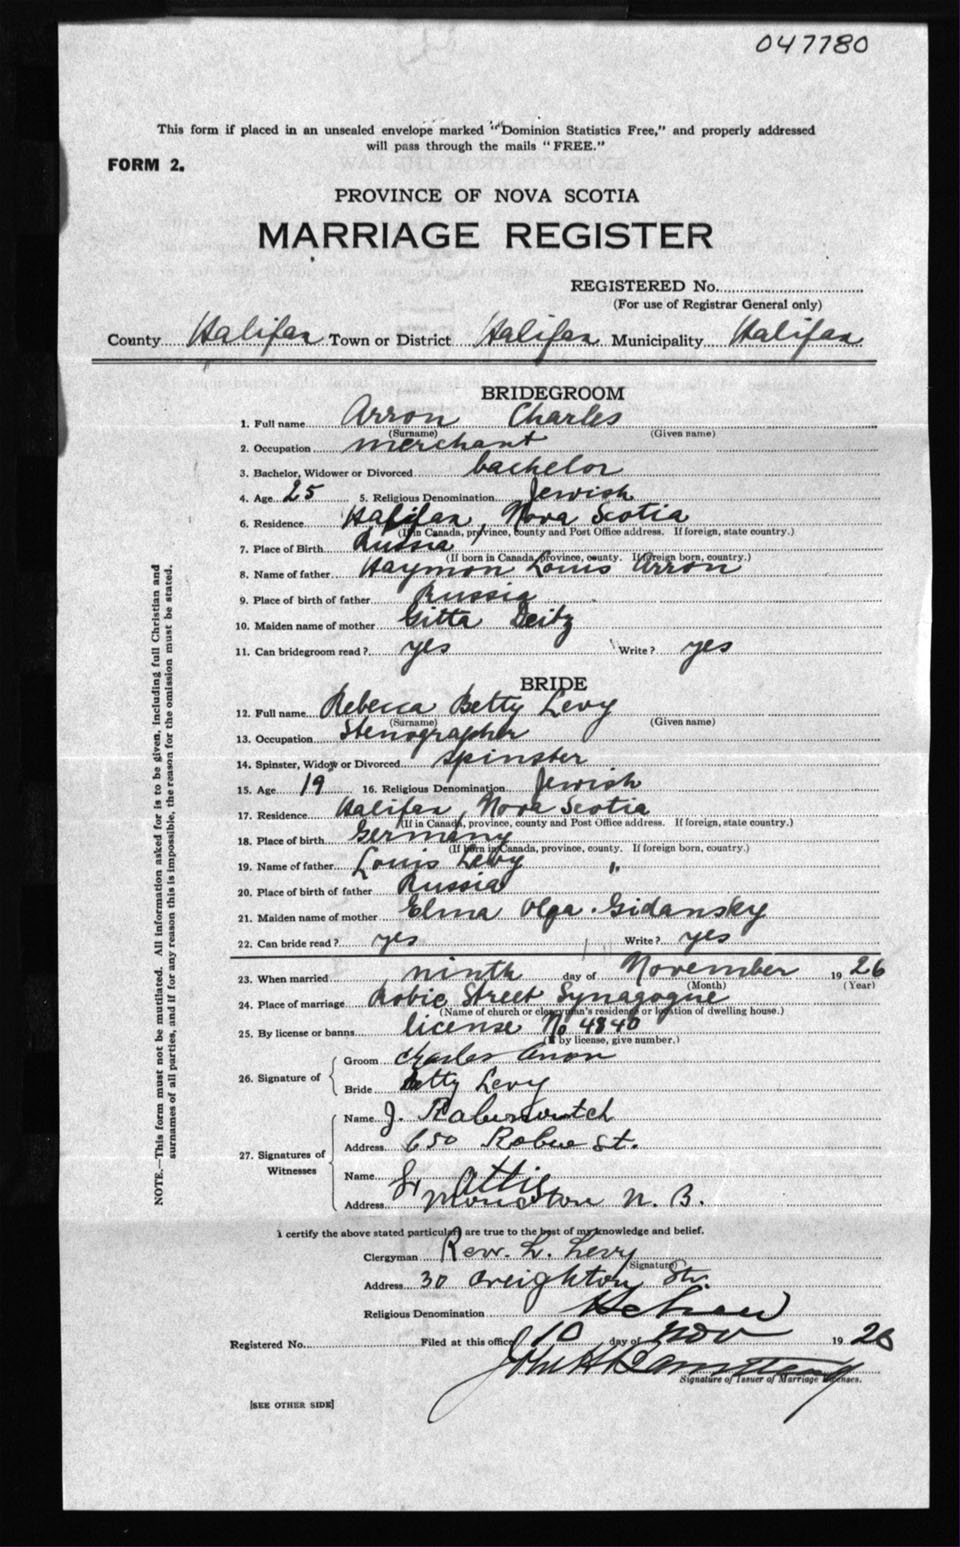 047780
This form if placed in an unsealed envelope marked "Dominion Statistics Free," and properly addressed
will pass through the mails "FREE."
FORM 2.
PROVINCE OF NOVA SCOTIA
MARRIAGE REGISTER
REGISTERED No.
(For use of Registrar General only)
County Halifax Town or District Halifax Municipality Halifax
BRIDEGROOM
1. Full name Arron Charles
(Surname) (Given name)
2. Occupation merchant
3. Bachelor, Widower or Divorced bachelor
4. Age 25 5. Religious Denomination Jewish
6. Residence Halifax, Nova Scotia
(If in Canada, province, county and Post Office address. If foreign, state country.)
7. Place of Birth Russia
(If born in Canada, province, county. If foreign born, country.)
8. Name of father Haymon Louis Arron
9. Place of birth of father Russia
10. Maiden name of mother Gitta Deitz
11. Can bridegroom read? yes Write? yes
BRIDE
12. Full name Rebecca Betty Levy
(Surname) (Given name)
13. Occupation Stenographer
14. Spinster, Widow or Divorced spinster
15. Age 19 16. Religious Denomination Jewish
17. Residence Halifax, Nova Scotia
(If in Canada, province, county and Post Office address. If foreign, state country.)
18. Place of birth Germany
(If born in Canada, province, county. If foreign born, country.)
19. Name of father Louis Levy "
20. Place of birth of father Russia
21. Maiden name of mother Elma Olga Gidansky
22. Can bride read? yes Write? yes
23. When married ninth day of November 1926
(Month) (Year)
24. Place of marriage Robie Street Synagogue
(Name of church or clergyman's residence or location of dwelling house.)
25. By license or banns license No 4840
(If by license, give number.)
26. Signature of
Groom Charles Arron
Bride Betty Levy
27. Signatures of Witnesses
Name J. Rabinovitch
Address 650 Robie St.
Name Attis
Address Moncton N. B.
I certify the above stated particulars are true to the best of my knowledge and belief.
Clergyman Rew. L. Levy
(Signature)
Address 30 Creighton Str.
Religious Denomination Hebrew
Registered No. Filed at this office 10 day of Nov 1926
John H
Signature of Issuer of Marriage Licenses.
[SEE OTHER SIDE]
NOTE.—This form must not be mutilated. All information asked for is to be given, including full Christian and
surnames of all parties, and if for any reason this is impossible, the reason for the omission must be stated.